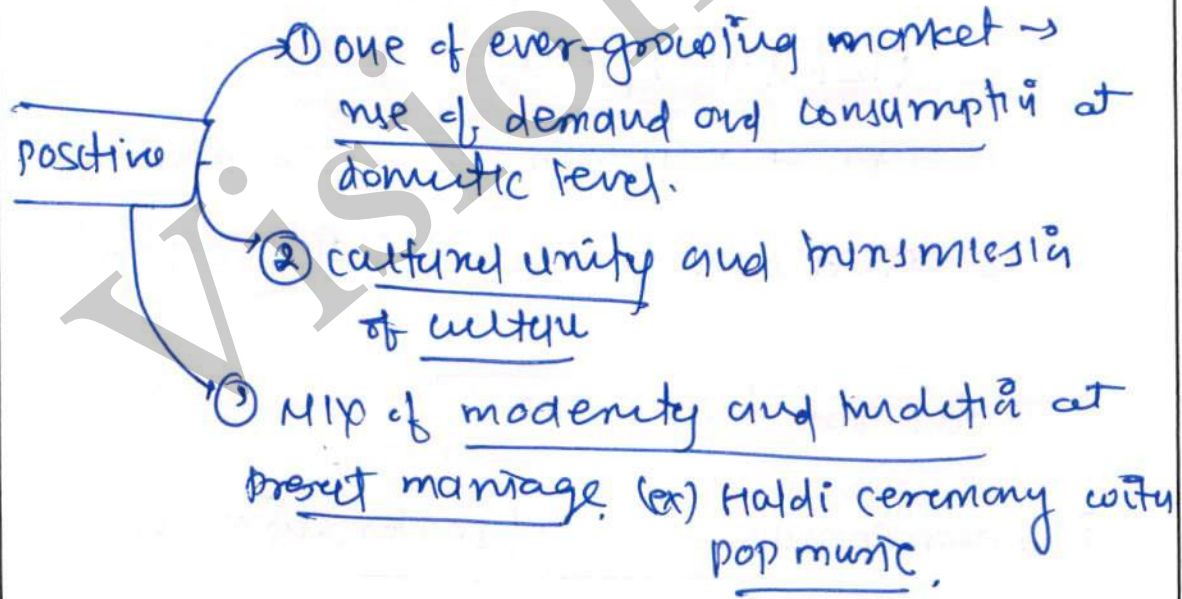 ① one of ever-growing market →
positive
rise of demand and consumption at
domestic level.
② cultural unity and transmission
of culture
③ Mix of modernity and tradition at
present marriage. (ex) Haldi ceremony with
pop music.
Vision